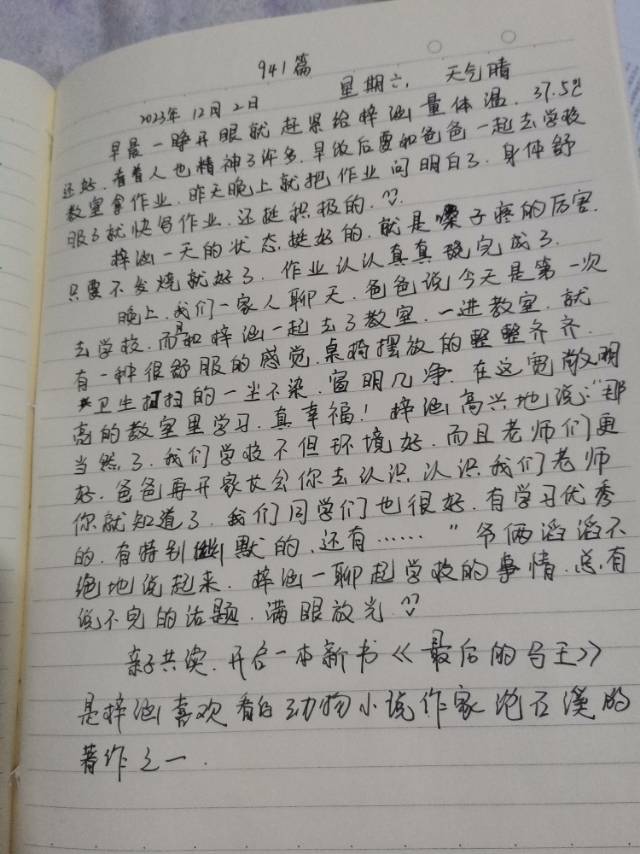 941篇
2023年 12月2日 星期六, 天气晴
早晨一睁开眼就赶紧给梓涵量体温.37.5℃
还好.看着人也精神了许多.早饭后要和爸爸一起去学校
教室拿作业.昨天晚上就把作业问明白了.身体舒
服了就快写作业.还挺积极的.
梓涵一天的状态挺好的.就是嗓子疼的厉害.
只要不发烧就好了.作业认认真真 完成了.
晚上.我们一家人聊天.爸爸说今天是第一次
去学校.而且和梓涵一起去了教室.一进教室.就
有一种很舒服的感觉.桌椅摆放的整整齐齐.
卫生打扫的一尘不染.窗明几净.在这宽敞明
亮的教室里学习.真幸福!梓涵高兴地说:“那
当然了.我们学校不但环境好.而且老师们更
好.爸爸再开家长会你去认识认识我们老师
你就知道了.我们同学们也很好.有学习优秀
的.有特别幽默的.还有……”爷俩滔滔不
绝地说起来.梓涵一聊起学校的事情.总有
说不完的话题.满眼放光.
亲子共读.开启一本新书《最后的马王》
是梓涵喜欢看的动物小说作家沈石溪的
著作之一.